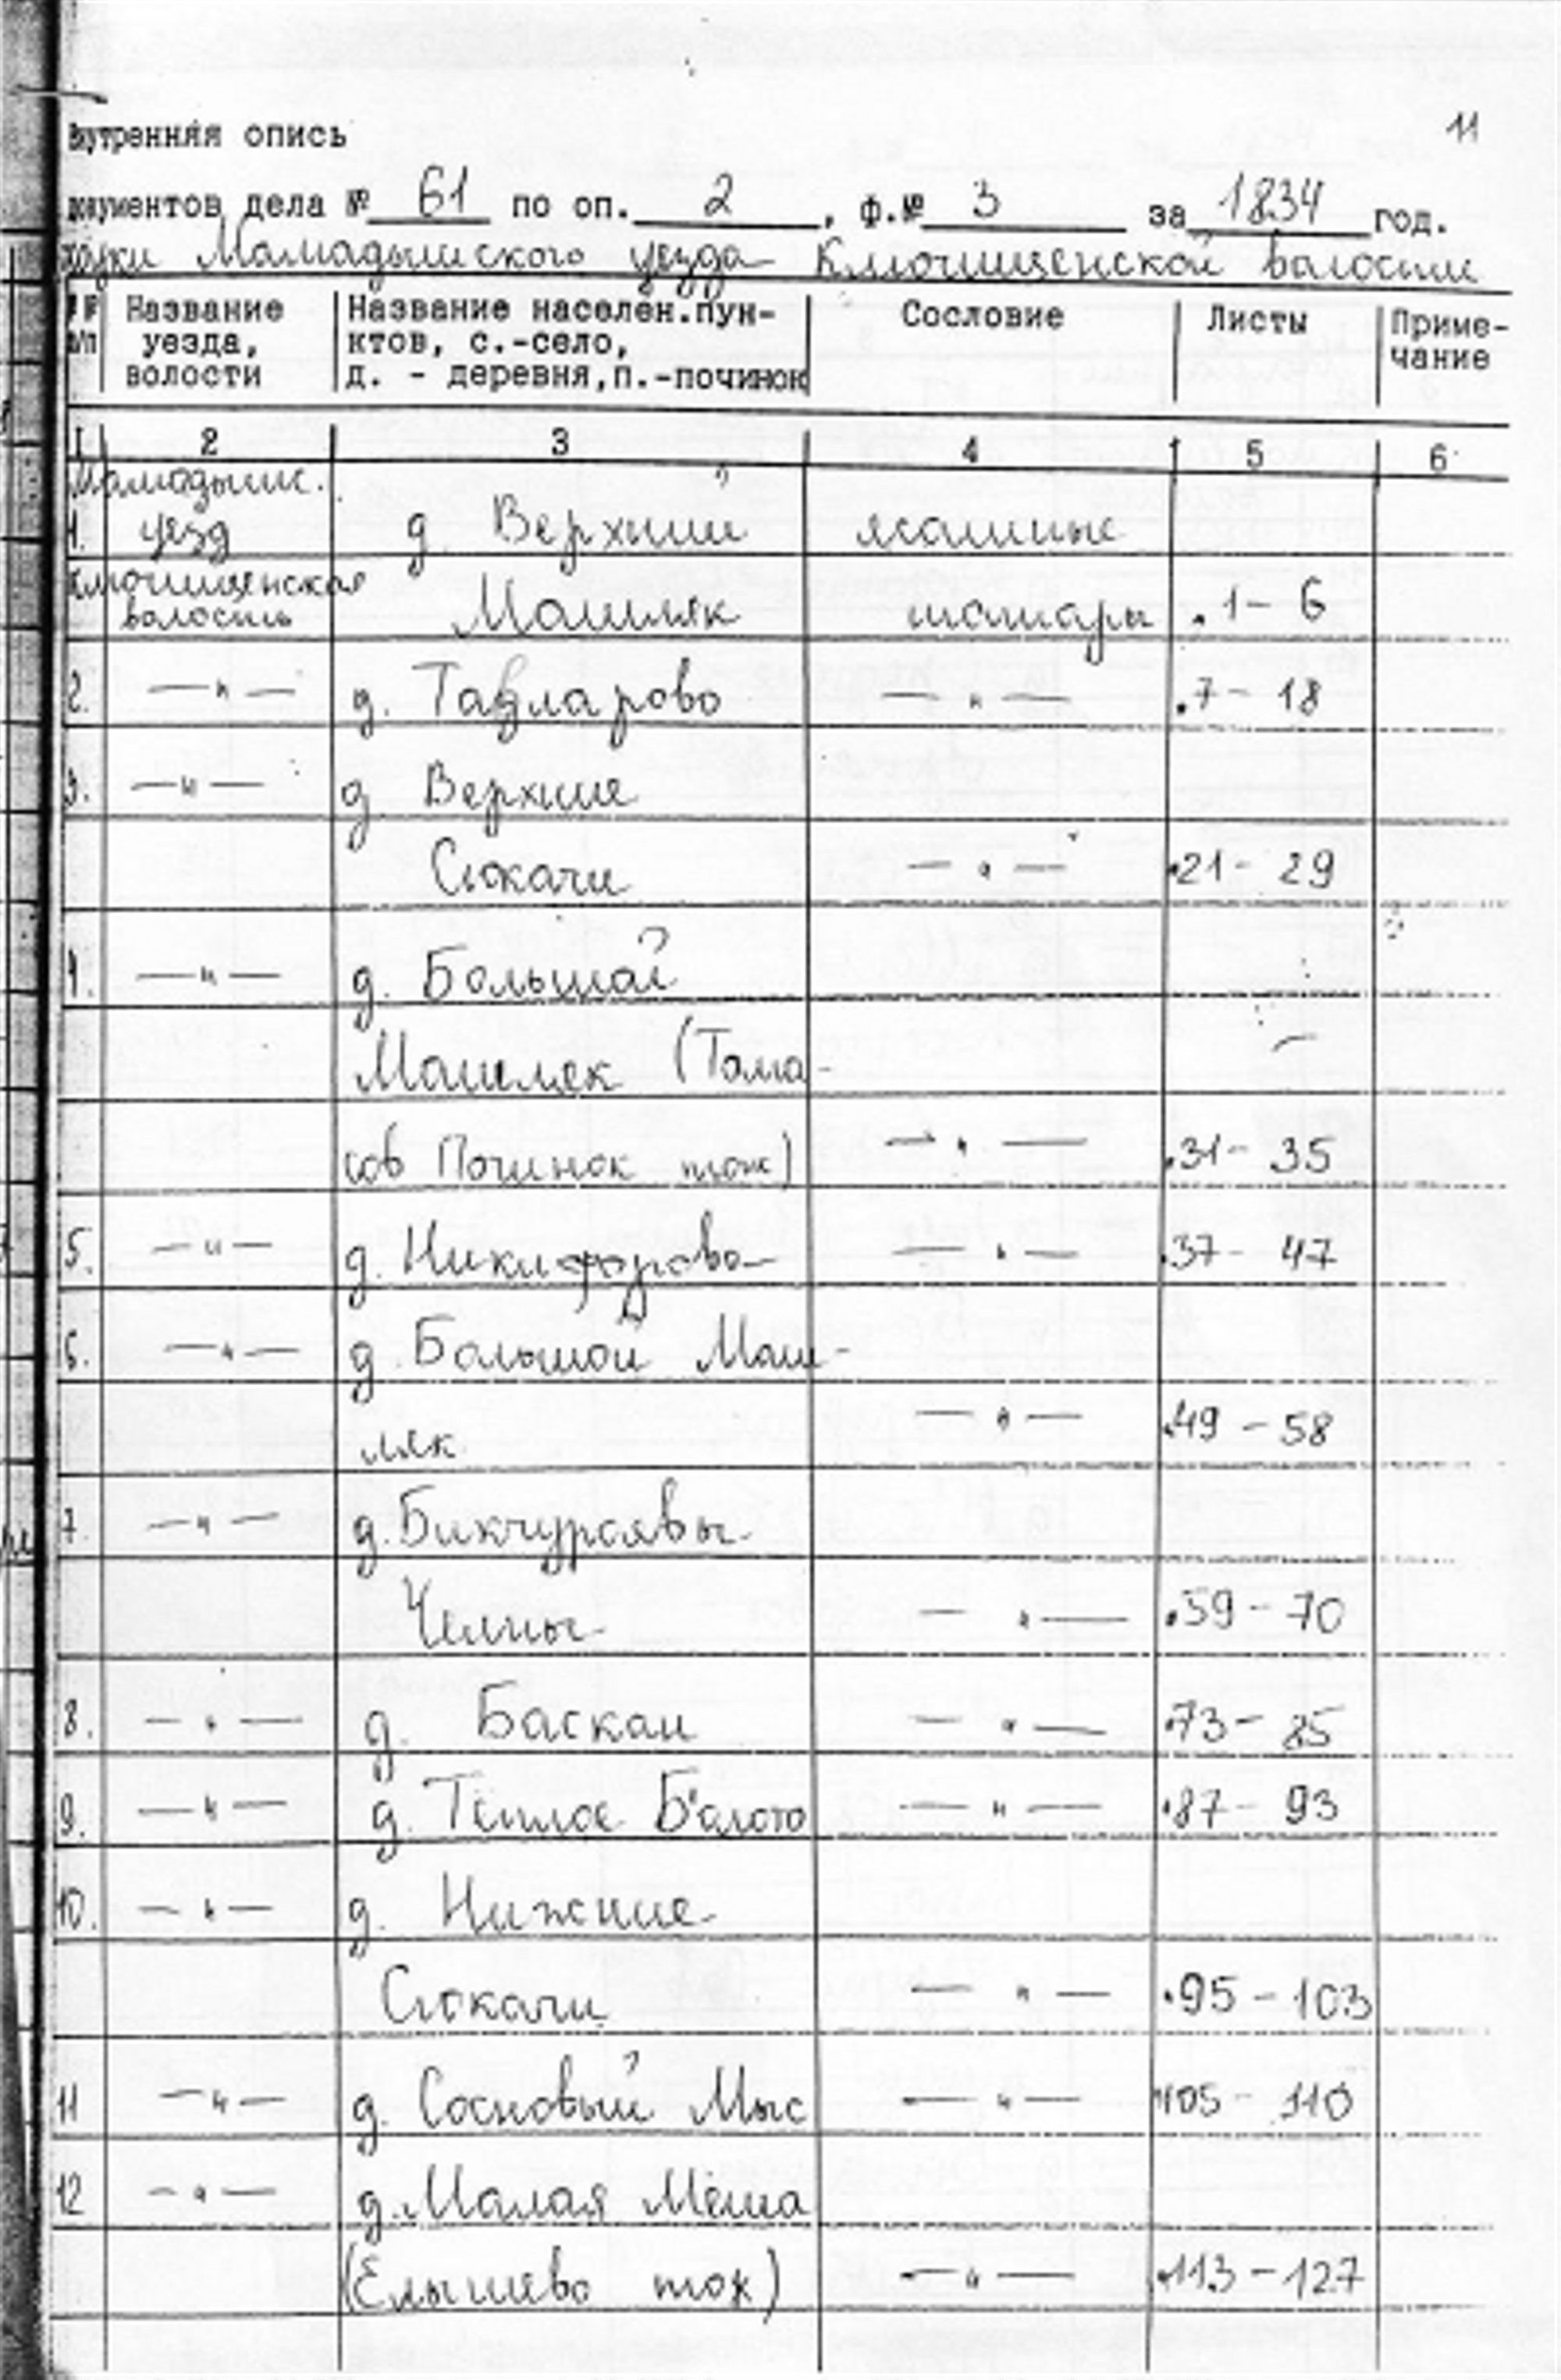 11
Внутренняя опись
документов дела № 61 по оп. 2, ф.№ 3 за 1834 год.
Мамадышского уезда Ключищенской волости
№№ п/п | Название уезда, волости | Название населен.пунктов, с.-село, д. - деревня, п.-починок | Сословие | Листы | Примечание
1 2 3 4 5 6
Мамадышс.
1. уезд д Верхний ясашные
Ключищенская
волость Машляк татары 1- 6
2. —"— д. Тавларово —"— 7- 18
3. —"— д Верхние
Сюкачи —"— 21- 29
4. —"— д. Большой
Машляк (Тома-
сов Починок тож) —"— 31- 35
5. —"— д. Никифорово —"— 37- 47
6. —"— д. Большой Маш-
ляк —"— 49 - 58
7. —"— д. Бикчураевы
Челны —"— 59 - 70
8. —"— д. Баскан —"— 73- 85
9. —"— д. Теплое Болото —"— 87- 93
10. —"— д. Нижние
Сюкачи —"— 95 - 103
11 —"— д. Сосновый Мыс —"— 105- 110
12 —"— д. Малая Меша
(Елышево тож) —"— 113 - 127